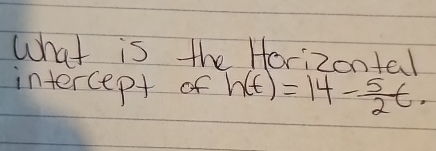 What is the Horizontal
intercept of h(t) = 14 - 5/2 t.